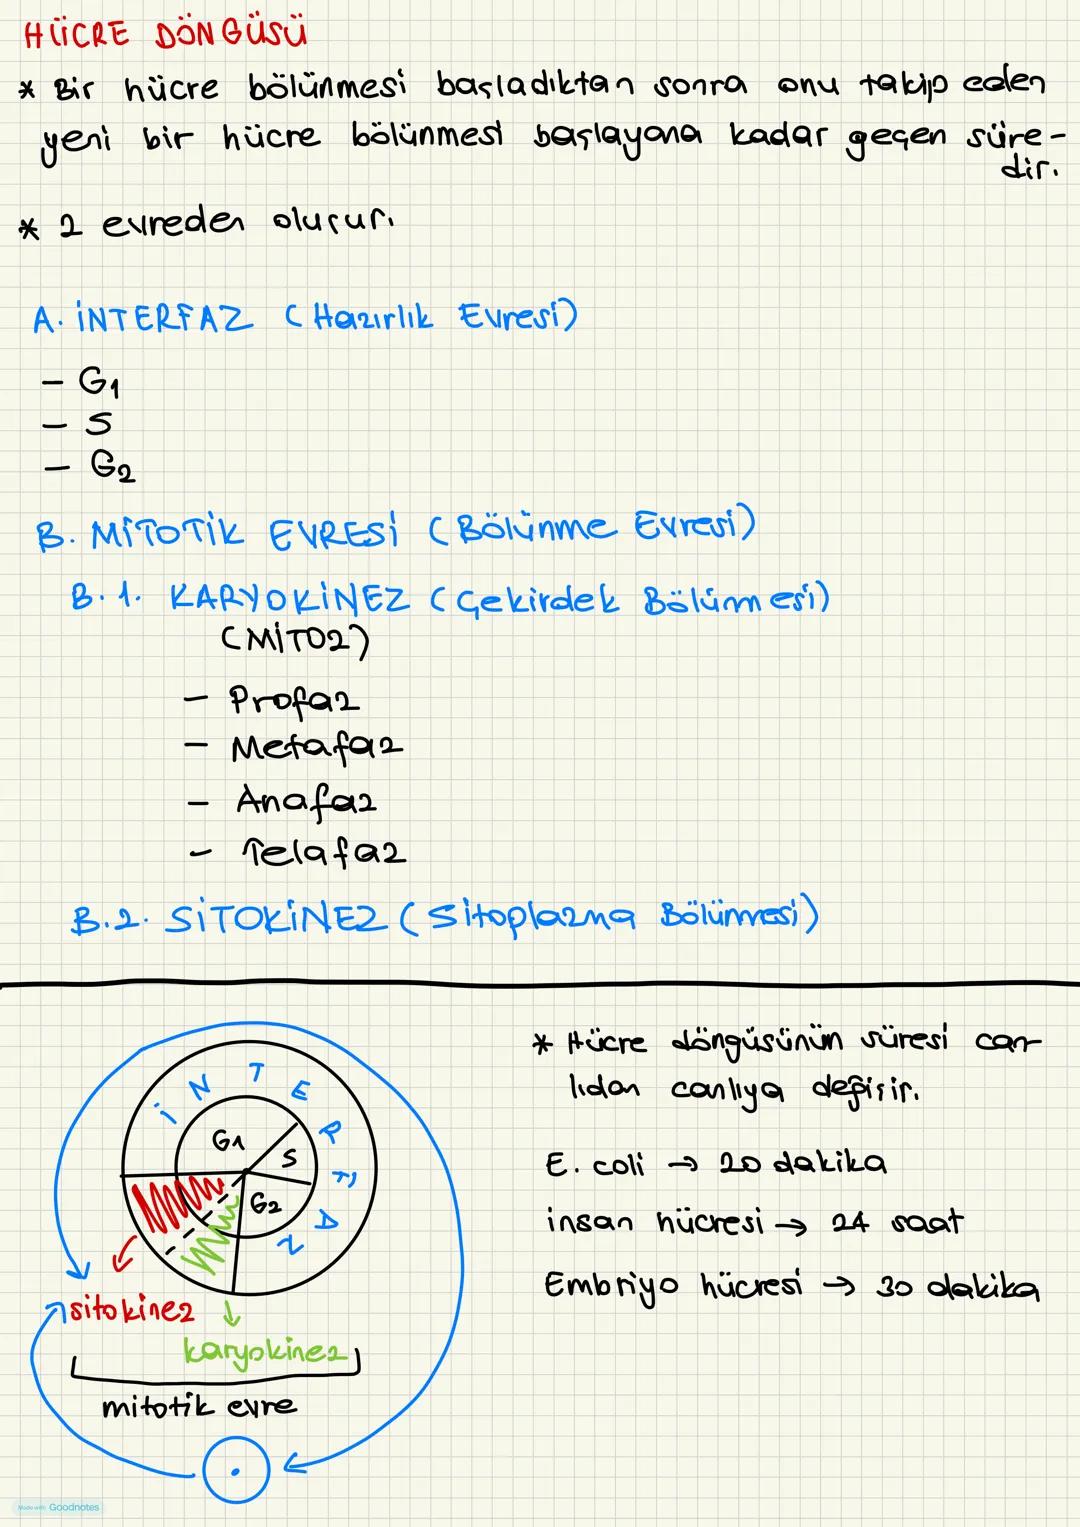 HÜCRE DÖNGÜSÜ
* Bir hücre bölünmesi başladıktan sonra onu takip eden
yeni bir hücre bölünmesi başlayana kadar geçen süre-
dir.
* 2 evreden oluşur.
A. İNTERFAZ (Hazırlık Evresi)
- G1
- S
- G2
B. MİTOTİK EVRESİ (Bölünme Evresi)
B.1. KARYOKİNEZ (Çekirdek Bölünmesi)
(MİTOZ)
- Profaz
- Metafaz
- Anafaz
- Telafaz
B.2. SİTOKİNEZ (Sitoplazma Bölünmesi)
* Hücre döngüsünün süresi can-
lıdan canlıya değişir.
E. coli → 20 dakika
insan hücresi → 24 saat
Embriyo hücresi → 30 dakika
İNTERFAZ
G1
S
G2
sitokinez
karyokinez
mitotik evre
Made with Goodnotes